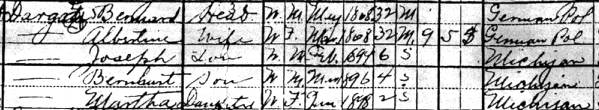 Bernard Head W M May 1868 32 M German Pol
— Albertine Wife W F 1868 32 M 9 5 German Pol
— Joseph Son W M Feb 1894 6 S Michigan
— Son W M Mar 1896 4 S Michigan
— Martha Daughter W F Jan 1898 2 S Michigan